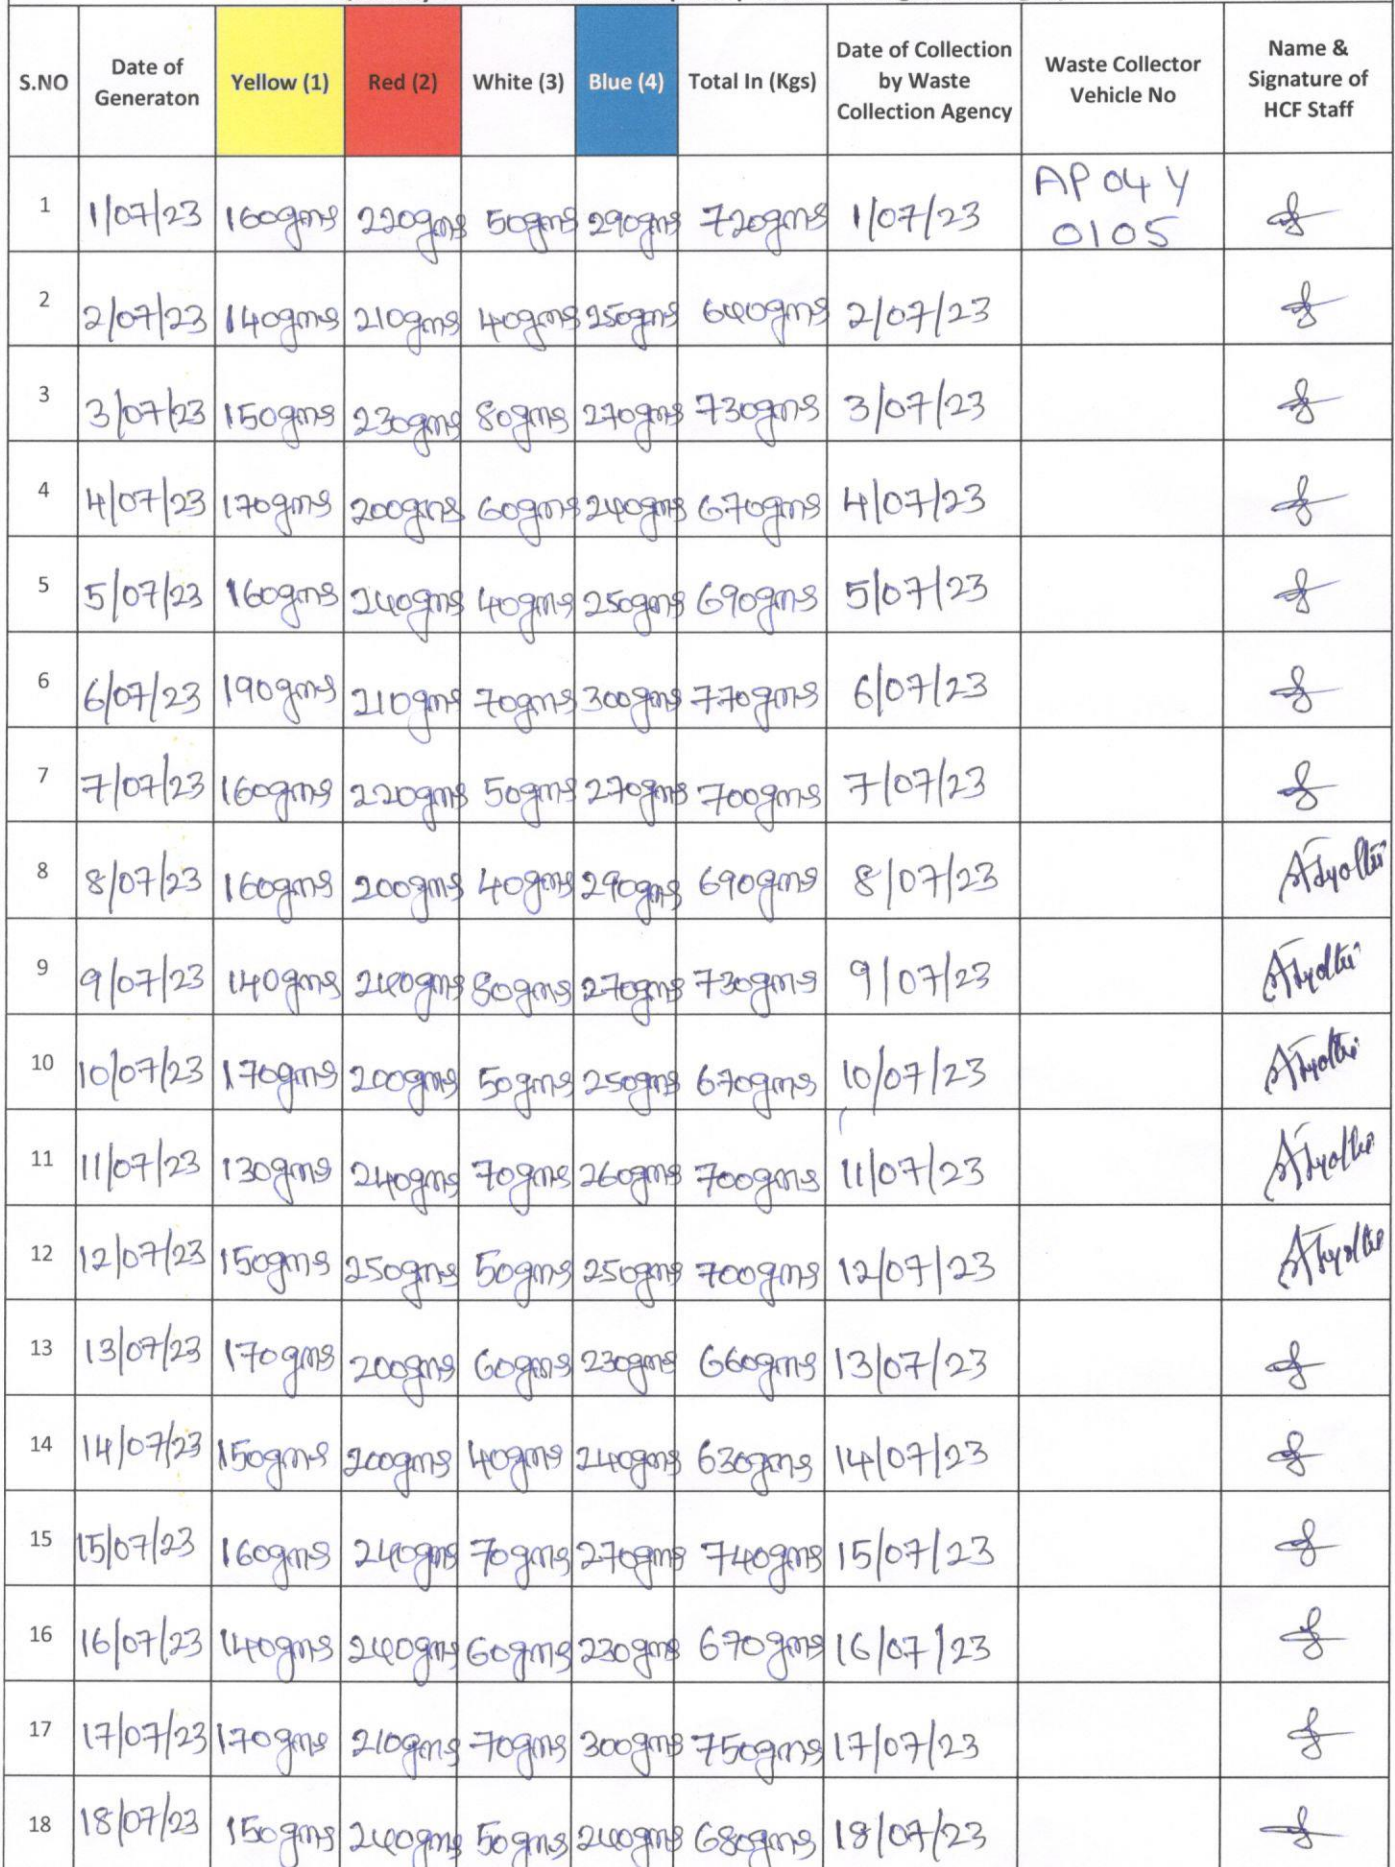 S.NO Date of Generaton Yellow (1) Red (2) White (3) Blue (4) Total In (Kgs) Date of Collection by Waste Collection Agency Waste Collector Vehicle No Name & Signature of HCF Staff
1 1/07/23 160gms 220gms 50gms 290gms 720gms 1/07/23 AP 04 Y 0105
2 2/07/23 140gms 210gms 40gms 250gms 640gms 2/07/23
3 3/07/23 150gms 230gms 80gms 270gms 730gms 3/07/23
4 4/07/23 170gms 200gms 60gms 240gms 670gms 4/07/23
5 5/07/23 160gms 240gms 40gms 250gms 690gms 5/07/23
6 6/07/23 190gms 210gms 70gms 300gms 770gms 6/07/23
7 7/07/23 160gms 220gms 50gms 270gms 700gms 7/07/23
8 8/07/23 160gms 200gms 40gms 290gms 690gms 8/07/23
9 9/07/23 140gms 240gms 80gms 270gms 730gms 9/07/23
10 10/07/23 170gms 200gms 50gms 250gms 670gms 10/07/23
11 11/07/23 130gms 240gms 70gms 260gms 700gms 11/07/23
12 12/07/23 150gms 250gms 50gms 250gms 700gms 12/07/23
13 13/07/23 170gms 200gms 60gms 230gms 660gms 13/07/23
14 14/07/23 150gms 200gms 40gms 240gms 630gms 14/07/23
15 15/07/23 160gms 240gms 70gms 270gms 740gms 15/07/23
16 16/07/23 140gms 240gms 60gms 230gms 670gms 16/07/23
17 17/07/23 170gms 210gms 70gms 300gms 750gms 17/07/23
18 18/07/23 150gms 240gms 50gms 240gms 680gms 18/07/23